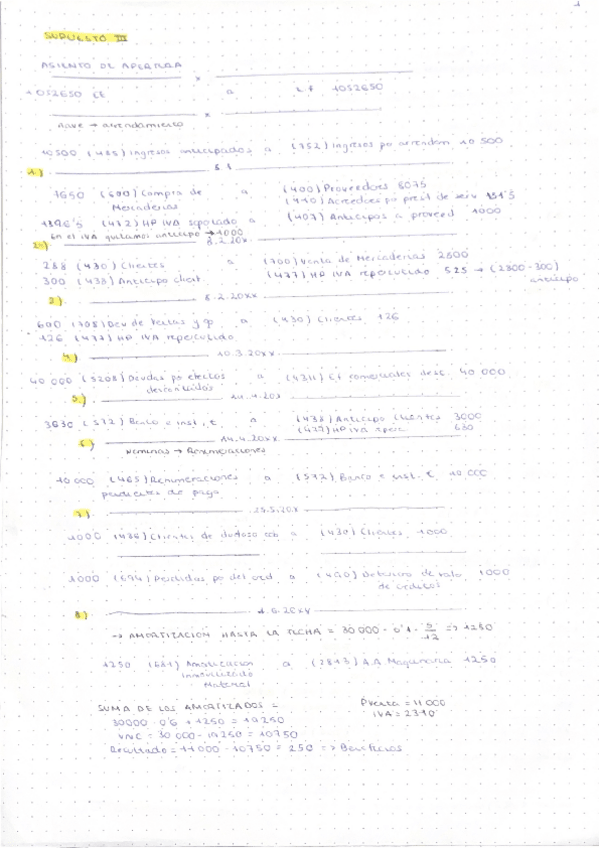 1
SUPUESTO III
ASIENTO DE APERTURA
x
1052650 CE a 1052650
x
Nave → arrendamiento
10500 (485) Ingresos anticipados a (752) Ingresos po arrendam 10 500
1.)
7650 (600) Compra de Mercaderías a (400) Proveedores 8075
(410) Acreedores po prest de serv
(472) HP IVA soportado a (407) Anticipos a proveed 1000
En el IVA quitamos anticipo → 1000
2.) 8.2.20xx
288 (430) Clientes a (700) Venta de Mercaderías 2800
300 (438) Anticipo client. (477) HP IVA repercutido 525 → (2800-300) anticipo
3.) 8.2.20xx
600 (708) Dev de Ventas y op a (430) Clientes 726
126 (477) HP IVA repercutido
4.) 10.3.20xx
40 000 (5208) Deudas po efectos descontados a (4311) Ef comerciales desc. 40 000
5.)
3630 (572) Banco e inst, € a (438) Anticipo Clientes 3000
(477) HP IVA reper. 630
6.) 14.4.20xx
Nóminas → Remuneraciones
10 000 (465) Remuneraciones pendientes de pago a (572) Banco e inst. € 10 000
7.)
1000 (436) Clientes de dudoso cob a (430) Clientes 1000
1000 (694) Pérdidas po det cred a (490) Deterioro de valo de créditos 1000
8.)
→ AMORTIZACIÓN HASTA LA FECHA = 30000 · 0'1 · 5/12 => 1250
1250 (681) Amortización Inmovilizado Material a (2813) A.A Maquinaria 1250
SUMA DE LOS AMORTIZADOS =
30000 · 0'6 + 1250 = 19250
VNC = 30 000 - 19 250 = 10750
Resultado = 11 000 - 10750 = 250 => Beneficios
Pventa = 11 000
IVA = 2310